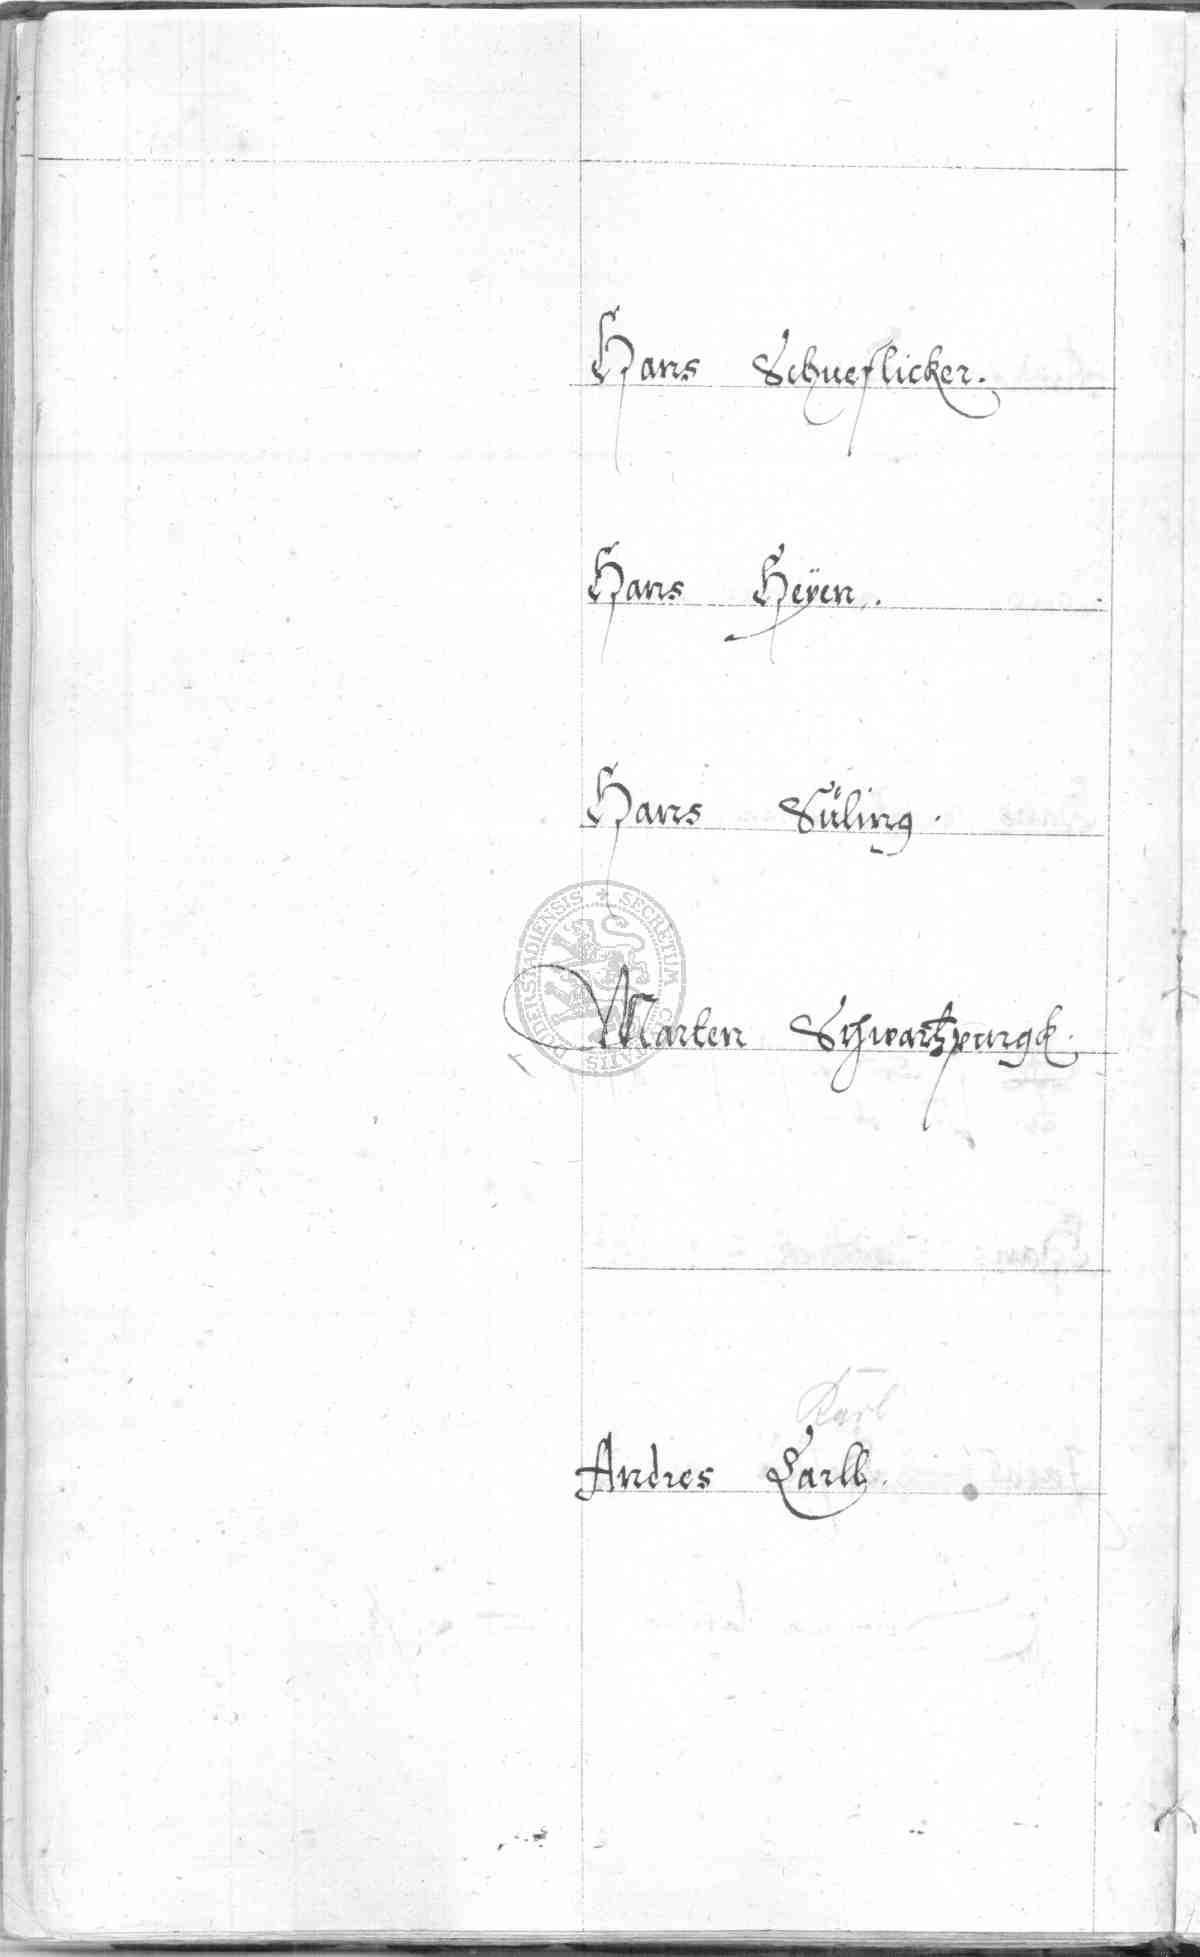 Hans Schueflicker.
Hans Heÿen.
Hans Süling.
SECRETUM CIVITATIS DUDERSTADIENSIS
Marten Schwartzpurgk.
Karl
Andres Carll.